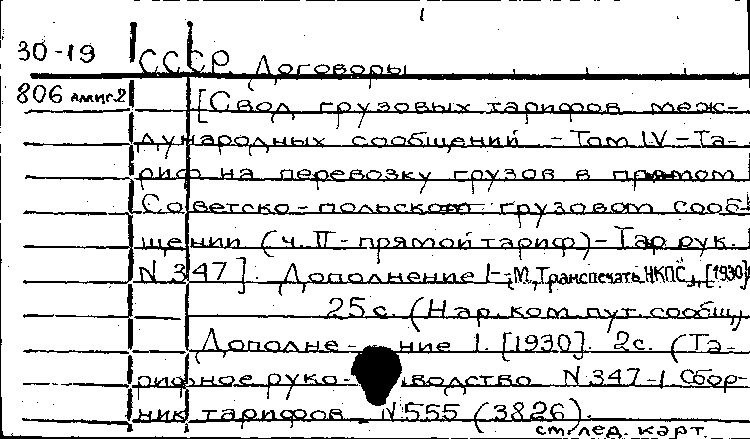 1
30-19 СССР. Договоры
806 аллиг.2 [Свод грузовых тарифов меж-
дународных сообщений - Том IV - Та-
риф на перевозку грузов в прямом
Советско-польском грузовом сооб-
щении (ч. II - прямой тариф) - Тар. рук.
N 347]. Дополнение 1- [М., Транспечать НКПС], [1930]
25 с. (Нар. ком. пут. сообщ.)
Дополне- ние 1. [1930]. 2с. (Та-
рифное руко- водство N 347-1 Сбор-
ник тарифов N 555 (3826).
см. след. карт.